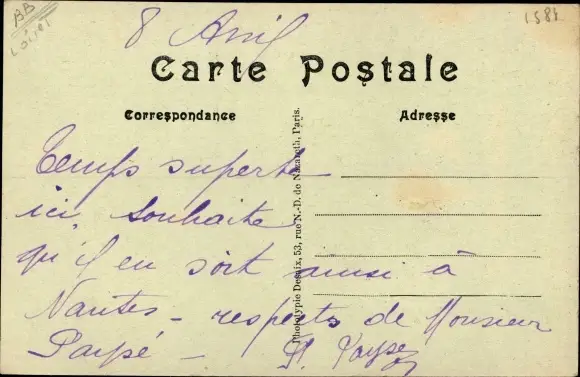 BB
Loiret
1584
8 Avril
Carte Postale
Correspondance
Adresse
Temps superbe
ici, souhaite
qu'il en soit ainsi à
Nantes - respects de Monsieur
Paysé -
Phototypie Desaix, 53, rue N.-D. de Nazareth, Paris.